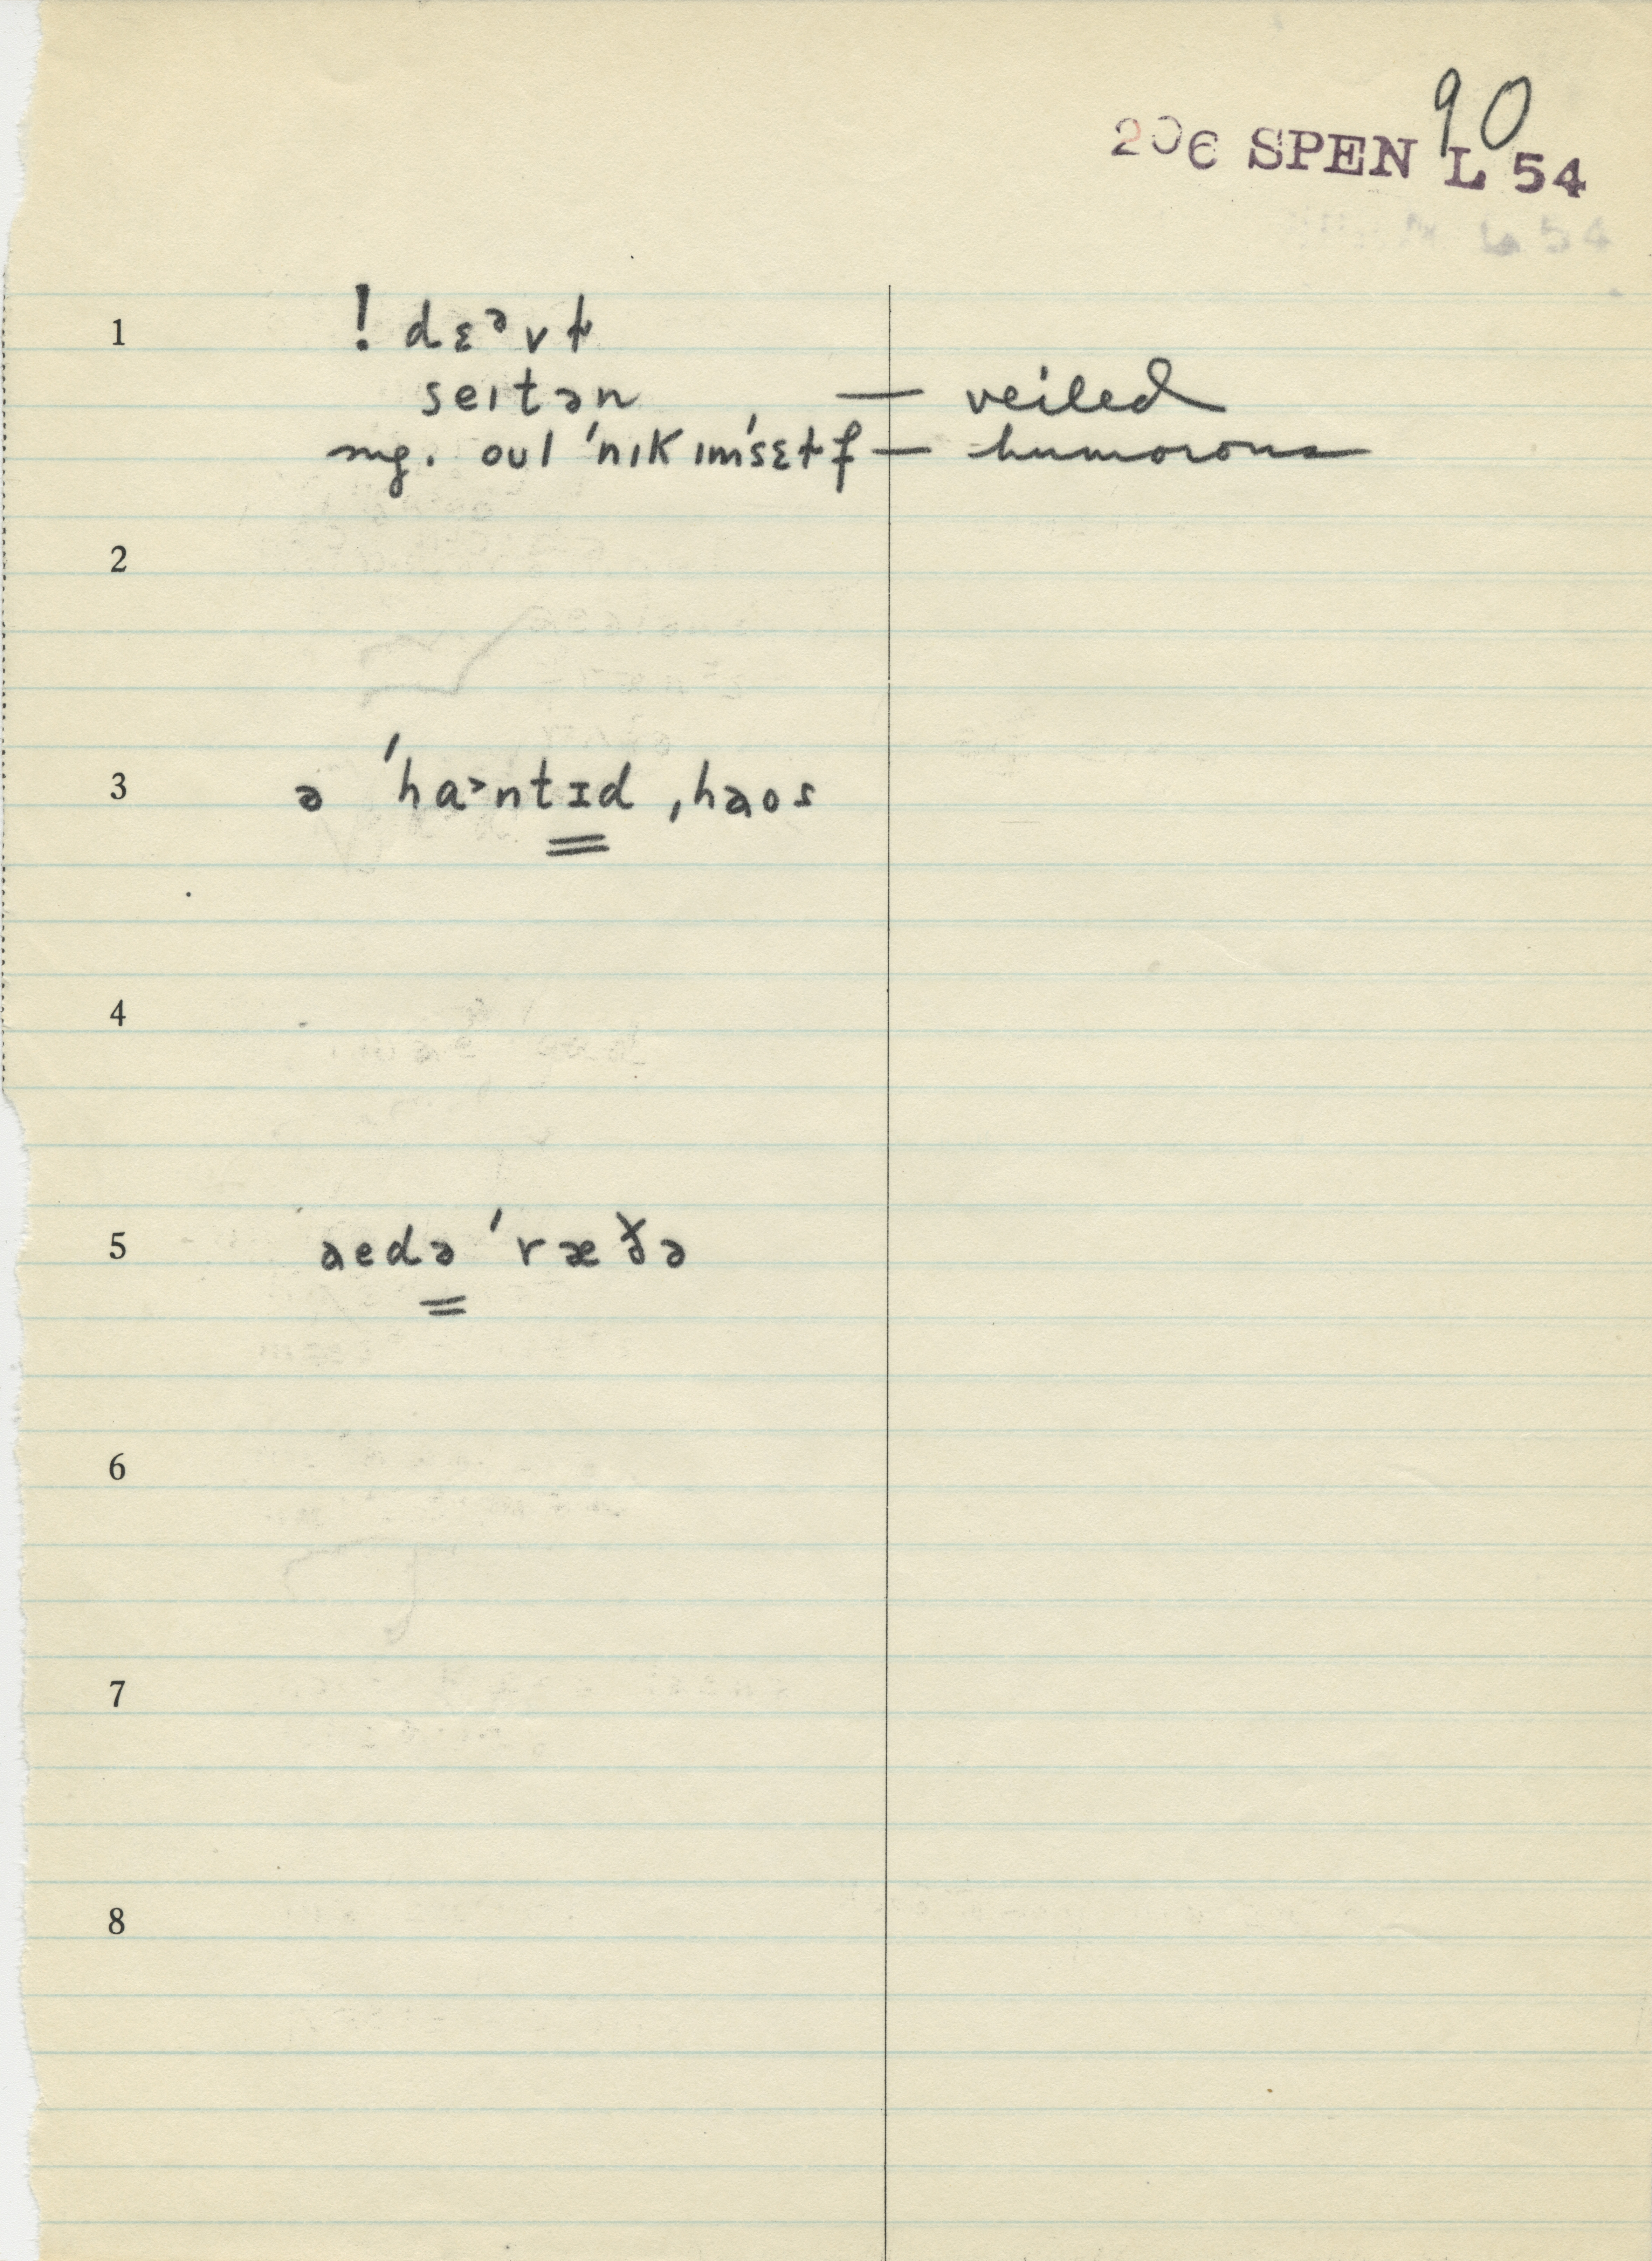 90
206 SPEN L 54
1 ! dɛᵊvɫ
seɪtən — veiled
mg. oʊl ˈnɪkɪmˈsɛɫf — humorous
2
3 ə ˈha˃ntɪd ˌhaos
4
5 aedə ˈræðə
6
7
8